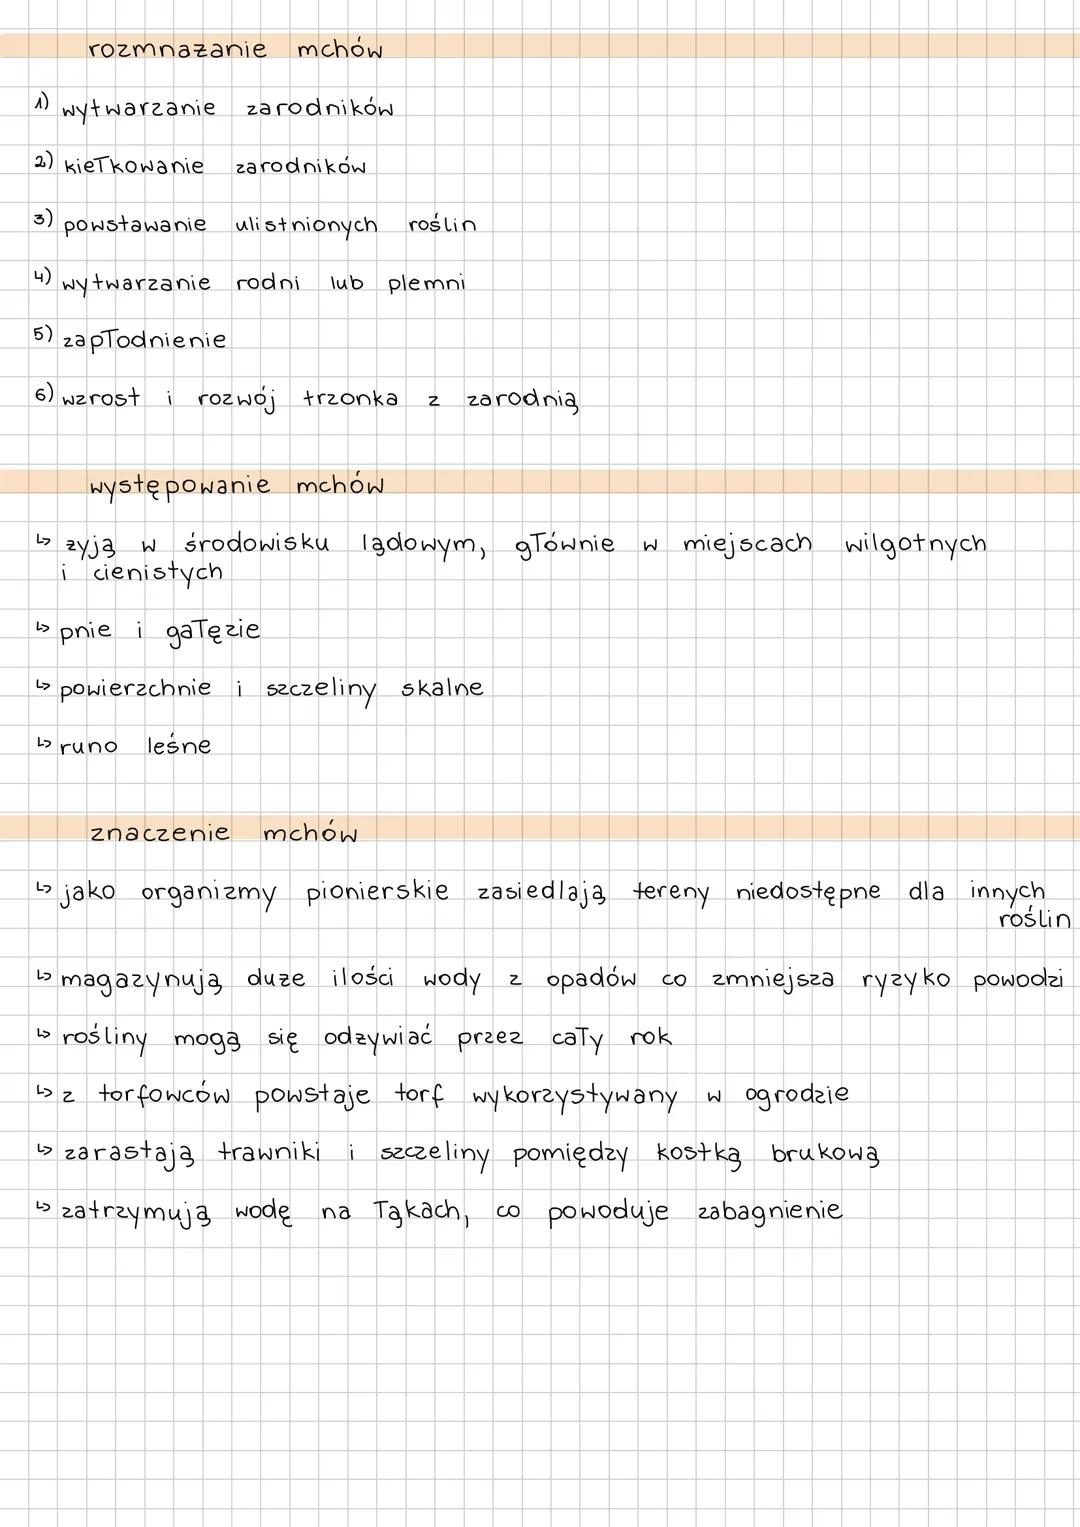 rozmnażanie mchów
1) wytwarzanie zarodników
2) kiełkowanie zarodników
3) powstawanie ulistnionych roślin
4) wytwarzanie rodni lub plemni
5) zapłodnienie
6) wzrost i rozwój trzonka z zarodnią
występowanie mchów
↳ żyją w środowisku lądowym, głównie w miejscach wilgotnych
i cienistych
↳ pnie i gałęzie
↳ powierzchnie i szczeliny skalne
↳ runo leśne
znaczenie mchów
↳ jako organizmy pionierskie zasiedlają tereny niedostępne dla innych
roślin
↳ magazynują duże ilości wody z opadów co zmniejsza ryzyko powodzi
↳ rośliny mogą się odżywiać przez cały rok
↳ z torfowców powstaje torf wykorzystywany w ogrodzie
↳ zarastają trawniki i szczeliny pomiędzy kostką brukową
↳ zatrzymują wodę na łąkach, co powoduje zabagnienie